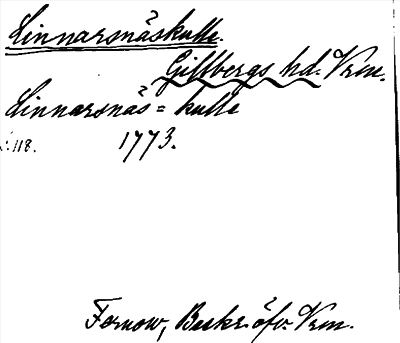 Linnarsnäskulle.
Gillbergs hd. Vrm.
Linnarsnäs=kulle
s. 118. 1773.
Fernow, Beskr. öfv. Vrm.